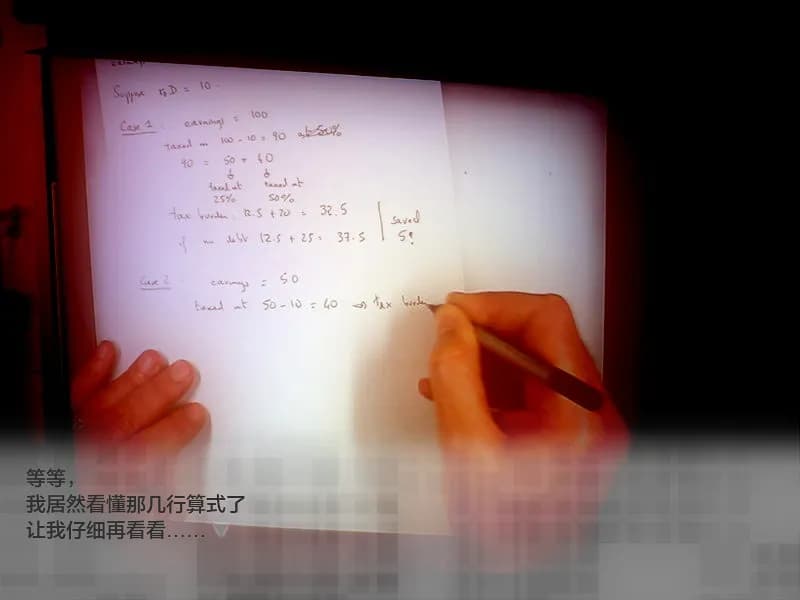 Suppose r₀D = 10
Case 1: earnings = 100
taxed on 100 - 10 = 90
90 = 50 + 40
taxed at taxed at
25% 50%
tax burden: 12.5 + 20 = 32.5
if no debt 12.5 + 25 = 37.5
saved
5!
Case 2 earnings = 50
taxed at 50 - 10 = 40 => tax burden
等等，
我居然看懂那几行算式了
让我仔细再看看……